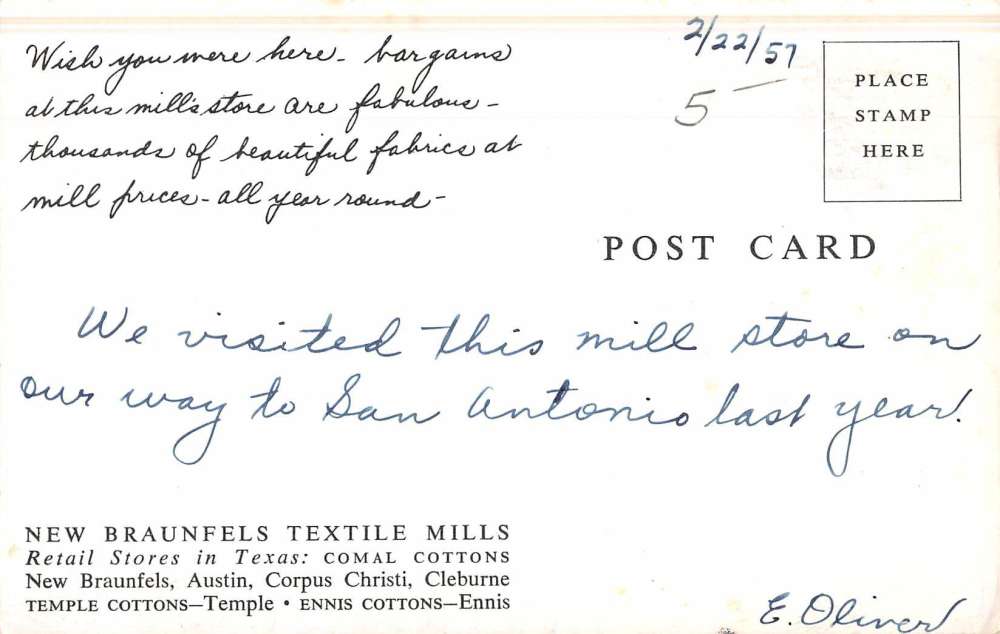 Wish you were here - bargains
at this mill's store are fabulous -
thousands of beautiful fabrics at
mill prices - all year round -
2/22/57
5 —
PLACE
STAMP
HERE
POST CARD
We visited this mill store on
our way to San Antonio last year!
NEW BRAUNFELS TEXTILE MILLS
Retail Stores in Texas: COMAL COTTONS
New Braunfels, Austin, Corpus Christi, Cleburne
TEMPLE COTTONS—Temple • ENNIS COTTONS—Ennis
E. Oliver